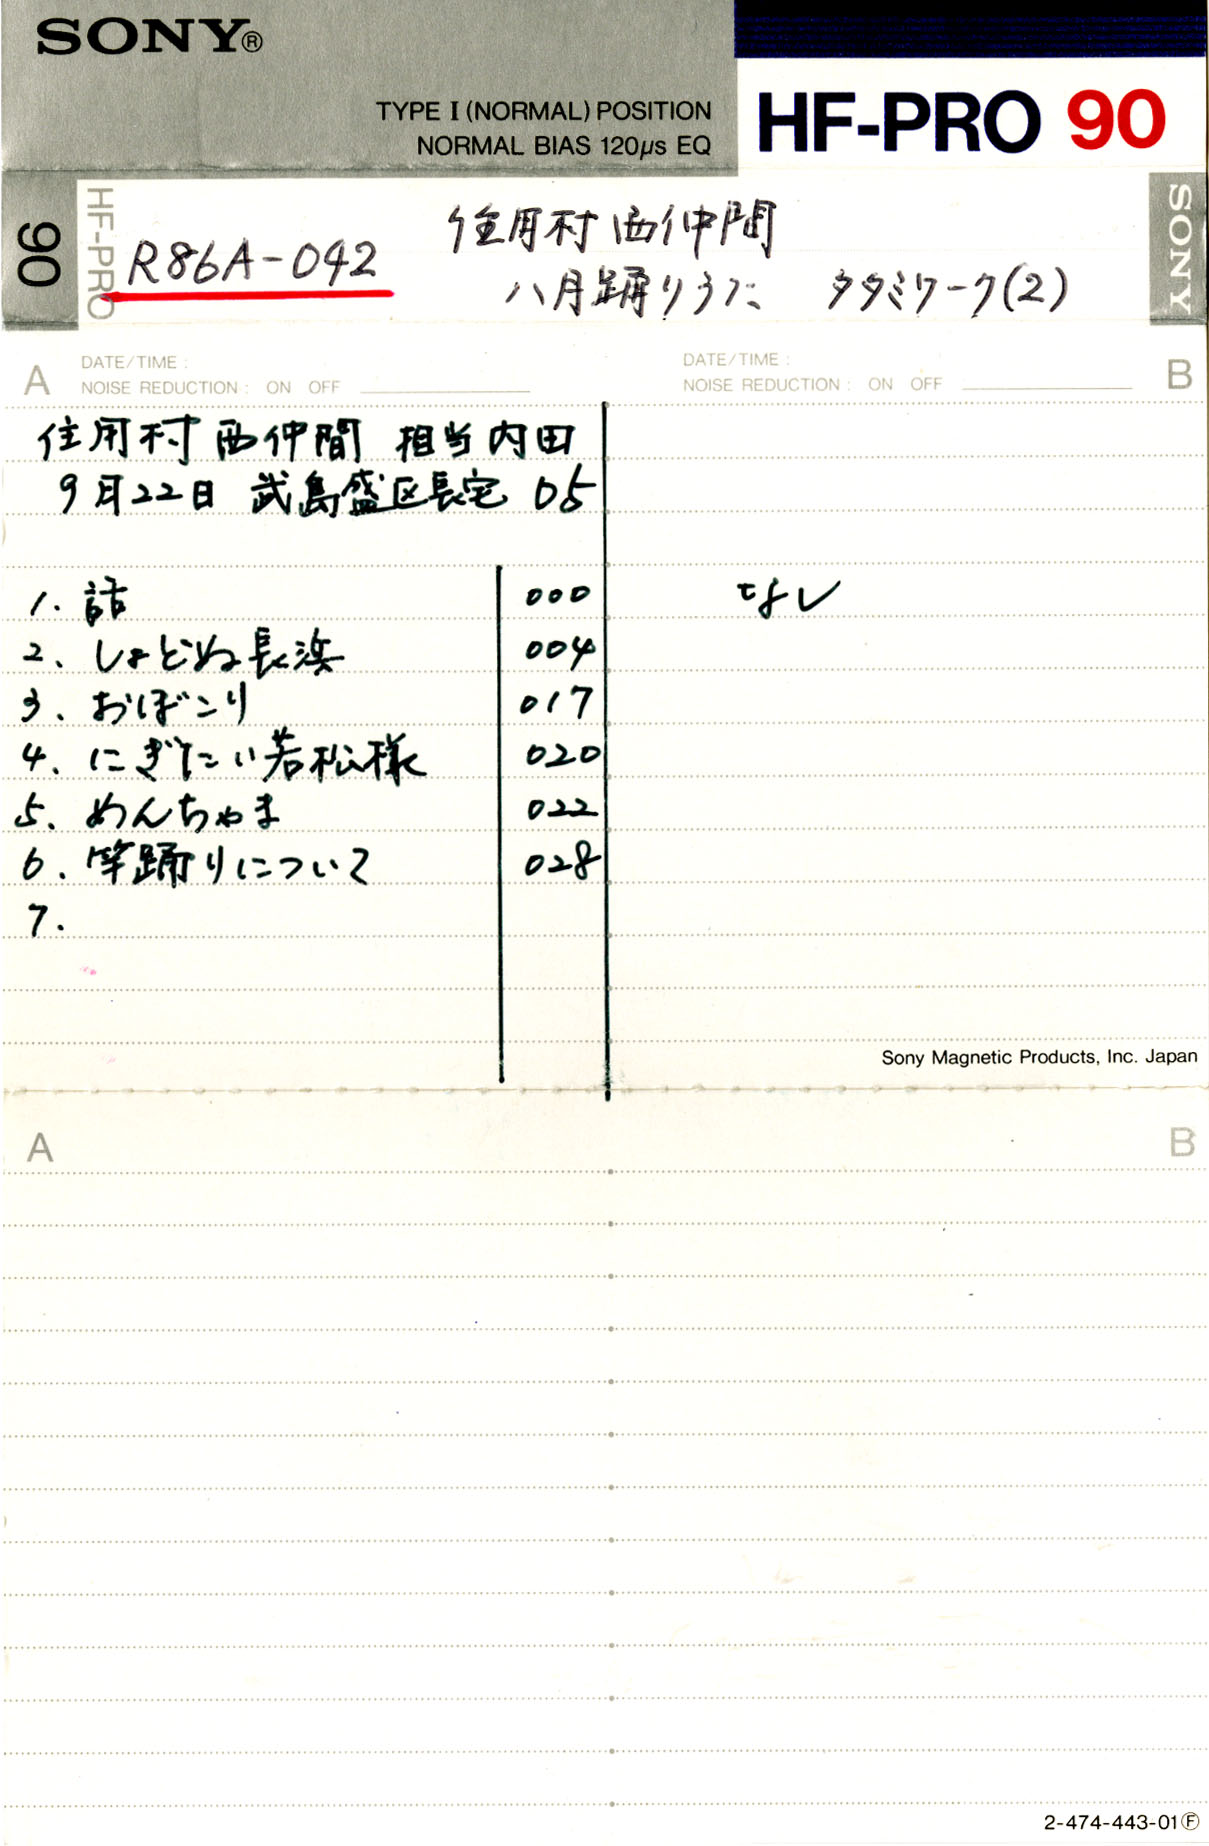 SONY®
TYPE I (NORMAL) POSITION
NORMAL BIAS 120μs EQ
HF-PRO 90
90
HF-PRO
R86A-042
住用村西仲間
八月踊りうた タタミワーク(2)
SONY
A
DATE/TIME :
NOISE REDUCTION : ON OFF
DATE/TIME :
NOISE REDUCTION : ON OFF
B
住用村西仲間 相当内田
9月22日 武島盛区長宅 05
1. 話 000
なし
2. しょどぬ長浜 004
3. おぼこり 017
4. にぎたい若松様 020
5. めんちゃま 022
6. 竿踊りについて 028
7.
Sony Magnetic Products, Inc. Japan
A
B
2-474-443-01Ⓕ